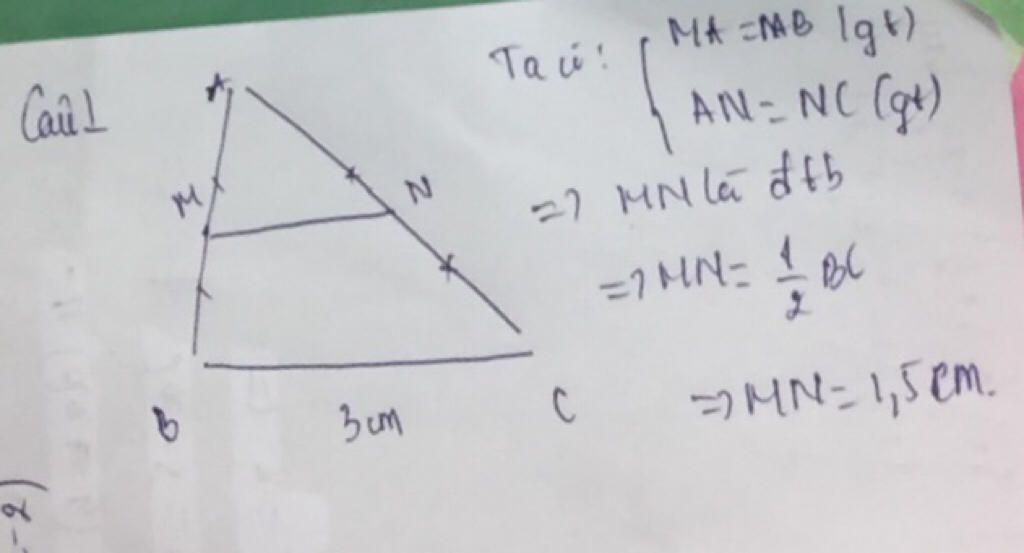 Câu 1
A
M
N
B
3cm
C
Ta có: MA = MB (gt)
AN = NC (gt)
=> MN là đtb
=> MN = 1/2 BC
=> MN = 1,5 cm.